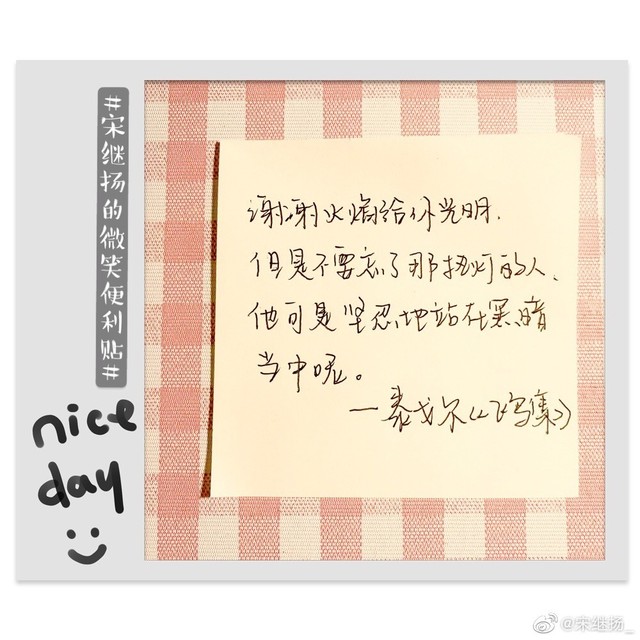 #宋继扬的微笑便利贴#
nice
day
谢谢火焰给你光明,
但是不要忘了那执灯的人、
他可是坚忍地站在黑暗
当中呢。
—泰戈尔《飞鸟集》
@宋继扬_